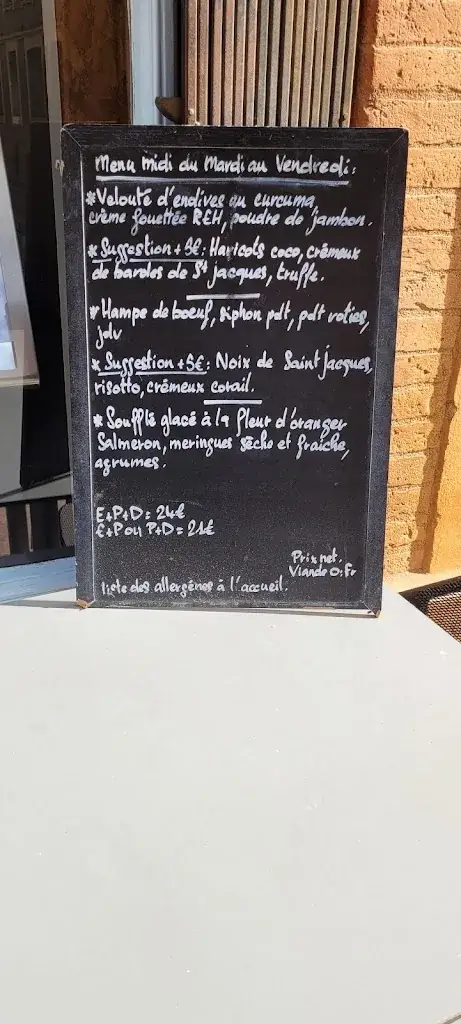 Menu midi du Mardi au Vendredi:
*Velouté d'endives au curcuma,
crème fouettée REH, poudre de jambon.
*Suggestion +5€: Haricots coco, crémeux
de bardes de St jacques, truffe.
*Hampe de boeuf, siphon pdt, pdt roties,
jdv
*Suggestion +5€: Noix de Saint jacques,
risotto, crémeux corail.
*Soufflé glacé à la fleur d'oranger
Salmeron, meringues sèche et fraîche,
agrumes.
E+P+D = 24€
E+P ou P+D = 21€
Prix net.
Viande O: Fr
liste des allergènes à l'accueil.